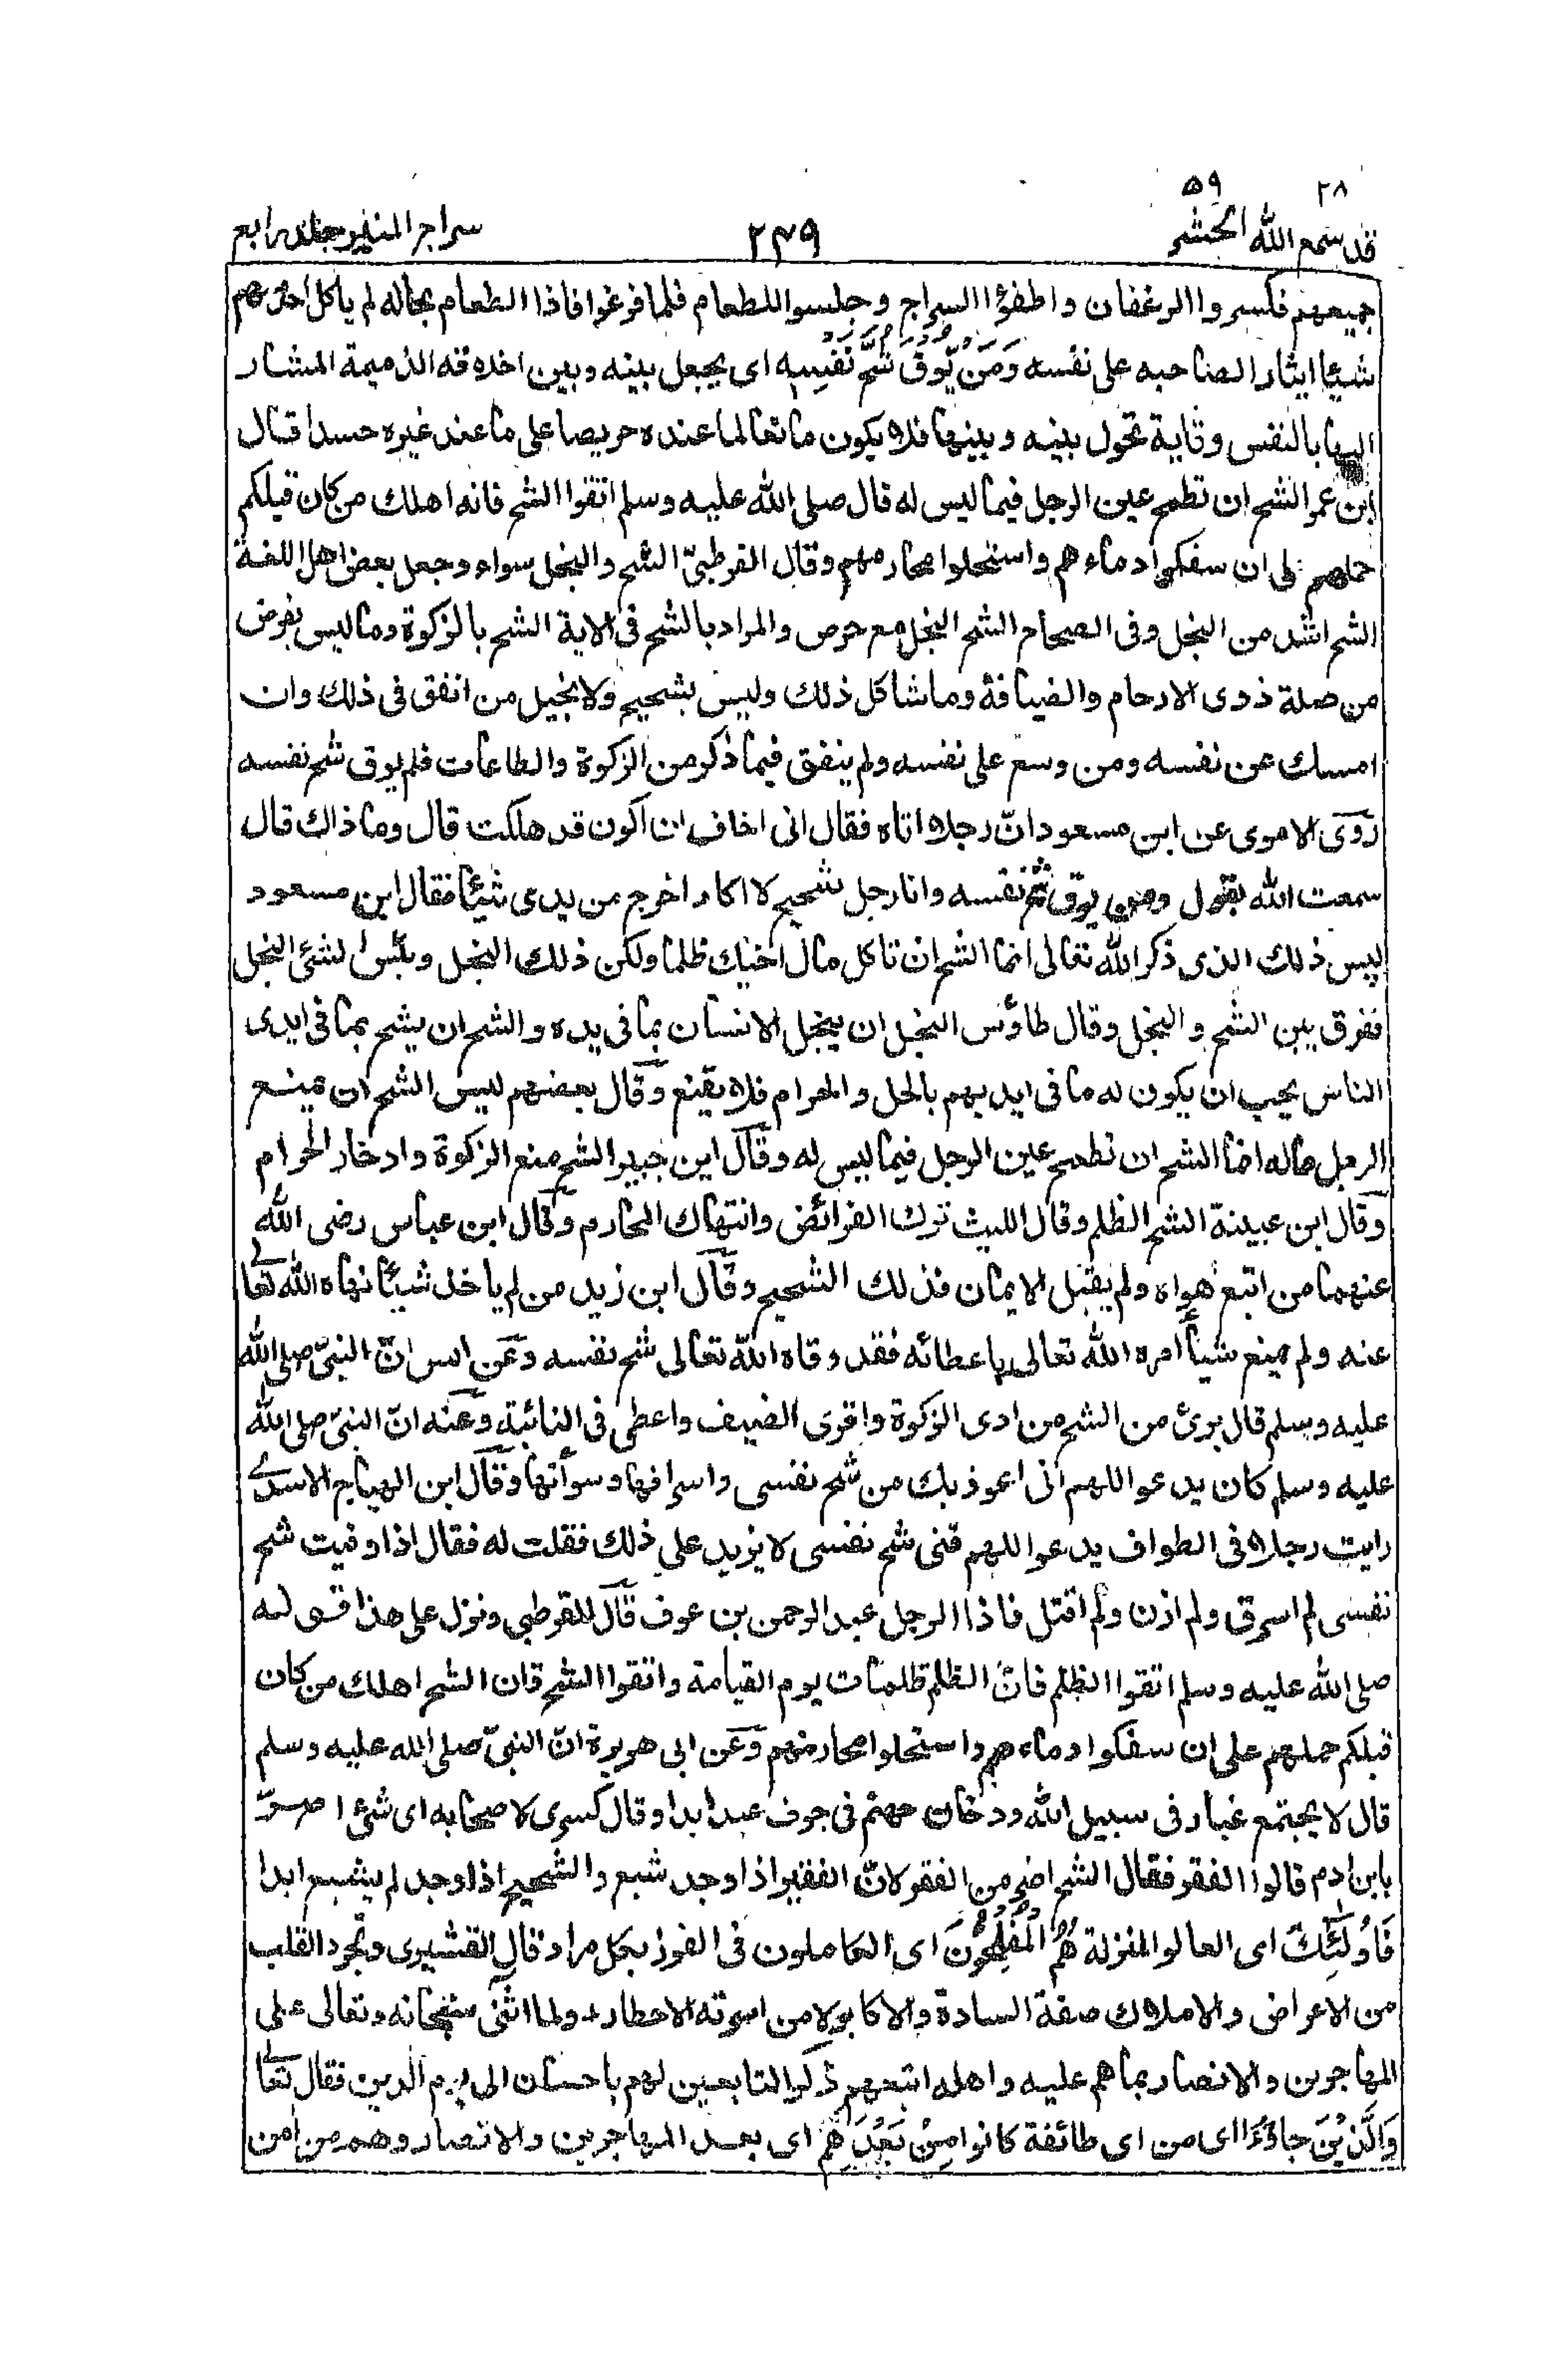 ٢٨
٥٩
قد سمع الله الحشر
٢٤٩
سراج المنير جلد رابع
جميعهم فكسروا الرغفان واطفؤا السراج وجلسوا للطعام فلما فرغوا فاذا الطعام بحاله لم ياكل احد منهم
شيئا ايثارا لصاحبه على نفسه وَمَن يُّوقَ شُحَّ نَفْسِهٖ اى يجعل بينه وبين اخلاقه الذميمة المشار
اليها بالنفس وقاية تحول بينه وبينها فلا يكون مانعا لما عنده حريصا على ما عند غيره حسدا قال
ابن عمر الشح ان تطمح عين الرجل فيما ليس له قال صلى الله عليه وسلم اتقوا الشح فانه اهلك من كان قبلكم
حملهم على ان سفكوا دماءهم واستحلوا محارمهم وقال القرطبىّ الشح والبخل سواء وجعل بعض اهل اللغة
الشح اشد من البخل وفى الصحاح الشح البخل مع حرص والمراد بالشح فى الاية الشح بالزكوة وما ليس بفرض
من صلة ذوى الارحام والضيافة وما شاكل ذلك وليس بشحيح ولا بخيل من انفق فى ذلك وان
امسك عن نفسه ومن وسع على نفسه ولم ينفق فيما ذكر من الزكوة والطاعات فلم يوق شح نفسه
روى الاموى عن ابن مسعود انّ رجلا اتاه فقال انى اخاف ان اكون قد هلكت قال وما ذاك قال
سمعت الله يقول ومن يوق شح نفسه وانا رجل شحيح لا اكاد اخرج من يدى شيئا فقال ابن مسعود
ليس ذلك الذى ذكر الله تعالى انما الشح ان تاكل مال اخيك ظلما ولكن ذلك البخل وبئس الشئ البخل
ففرق بين الشح والبخل وقال طاؤس البخل ان يبخل الانسان بما فى يده والشح ان يشح بما فى ايدى
الناس يحب ان يكون له ما فى ايديهم بالحل والحرام فلا يقنع وقال بعضهم ليس الشح ان يمنع
الرجل ماله انما الشح ان تطمح عين الرجل فيما ليس له وقال ابن جبير الشح منع الزكوة وادخار الحرام
وقال ابن عيينة الشح الظلم وقال الليث ترك الفرائض وانتهاك المحارم وقال ابن عباس رضى الله
عنهما من اتبع هواه ولم يقبل الايمان فذلك الشحيح وقال ابن زيد من لم ياخذ شيئا نهاه الله تعالى
عنه ولم يمنع شيأ امره الله تعالى باعطائه فقد وقاه الله تعالى شح نفسه وعن انس انّ النبىّ صلى الله
عليه وسلم قال برئ من الشح من ادى الزكوة واقرى الضيف واعطى فى النائبة وعنه انّ النبىّ صلى الله
عليه وسلم كان يدعو اللهم انى اعوذ بك من شح نفسى واسرافها وسوأتها وقال ابن الهياج الاسدى
رايت رجلا فى الطواف يدعو اللهم قنى شح نفسى لا يزيد على ذلك فقلت له فقال اذا وقيت شح
نفسى لم اسرق ولم ازن ولم اقتل فاذا الرجل عبد الرحمن بن عوف قال القرطبى ونزل على هذا قوله
صلى الله عليه وسلم اتقوا الظلم فانّ الظلم ظلمات يوم القيامة واتقوا الشح فان الشح اهلك من كان
قبلكم حملهم على ان سفكوا دماءهم واستحلوا محارمهم وعن ابى هريرة انّ النبىّ صلى الله عليه وسلم
قال لا يجتمع غبار فى سبيل الله ودخان جهنم فى جوف عبد ابدا وقال كسرى لاصحابه اى شئ اضرّ
بابن ادم قالوا الفقر فقال الشح اضر من الفقر لانّ الفقير اذا وجد شبع والشحيح اذا وجد لم يشبع ابدا
فَاُولٰٓئِكَ اى العالو المنزلة هُمُ الْمُفْلِحُوْنَ اى الكاملون فى الفوز بكل مراد قال القشيرى وتجرد القلب
من الاعراض والاملاك صفة السادة والاكابر لا من اسرته الاخطار ولما اثنى سبحانه وتعالى على
المهاجرين والانصار بما هم عليه واهله اتبعهم ذكر التابعين لهم باحسان الى يوم الدين فقال تعالى
وَالَّذِيْنَ جَاؤُا اى من اى طائفة كانوا مِنْ بَعْدِهِمْ اى بعد المهاجرين والانصار وهم من امن